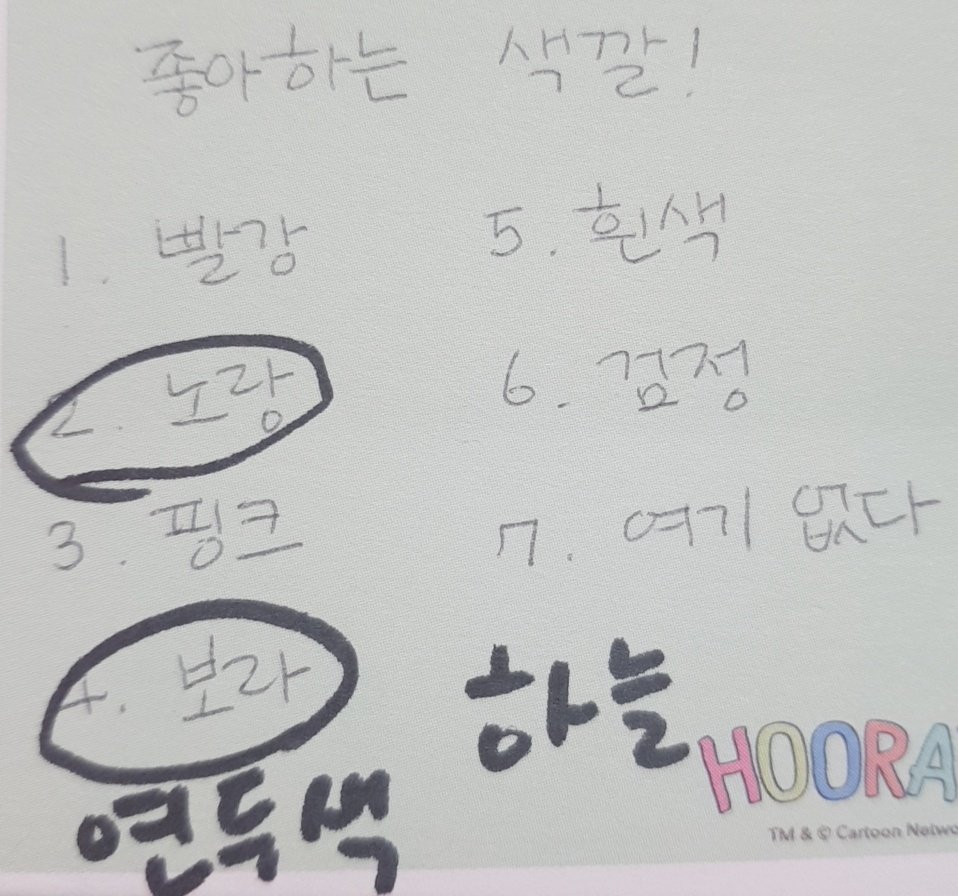 좋아하는 색깔!
1. 빨강
2. 노랑
3. 핑크
4. 보라
연두색
5. 흰색
6. 검정
7. 여기 없다
하늘
HOORA
TM & © Cartoon Netwo